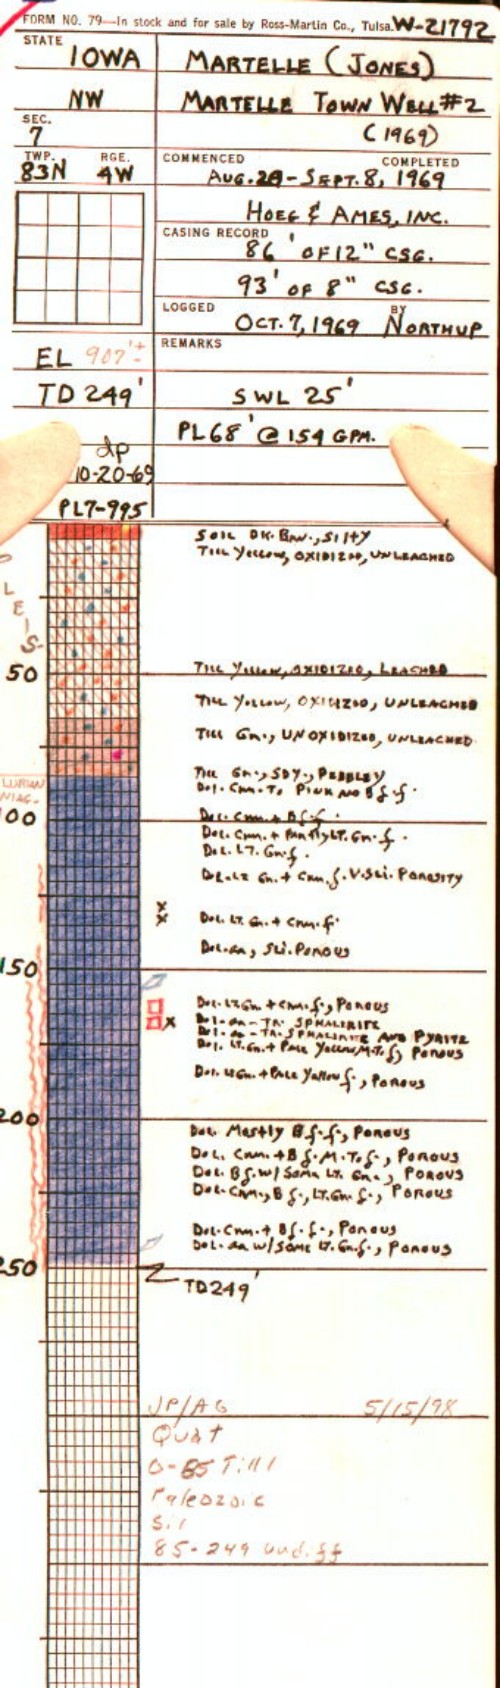 FORM NO. 79—In stock and for sale by Ross-Martin Co., Tulsa. W-21792
STATE IOWA MARTELLE (JONES)
NW MARTELLE TOWN WELL #2
SEC. 7 (1969)
TWP. 83N RGE. 4W COMMENCED COMPLETED
AUG. 28 - SEPT. 8, 1969
HOEG & AMES, INC.
CASING RECORD 86' OF 12" CSG.
93' OF 8" CSG.
LOGGED OCT. 7, 1969 BY NORTHUP
EL 907'± REMARKS
TD 249' SWL 25'
PL 68' @ 154 GPM.
dp
10-20-69
PL7-995
SOIL DK. BRN., SILTY
TILL YELLOW, OXIDIZED, UNLEACHED
L
E
I
S
50 TILL YELLOW, OXIDIZED, LEACHED
TILL YELLOW, OXIDIZED, UNLEACHED
TILL GR., UNOXIDIZED, UNLEACHED
TILL GR., SDY., PEBBLEY
LURIAN
NIAG.
DOL. CRM. TO PINK AND B f.-f.
00 DOL. CRM. + B f.-f.
DOL. CRM. + PARTLY LT. GR. f.
DOL. LT. GR. f.
DOL. LT. GR. + CRM. f. V. SLI. POROSITY
X
X DOL. LT. GR. + CRM. f.
DOL. AA, SLI. POROUS
150
DOL. LT. GR. + CRM. f., POROUS
DOL. AA - TR. SPHALERITE
X DOL. AA - TR. SPHALERITE AND PYRITE
DOL. LT. GR. + PALE YELLOW M. TO f., POROUS
DOL. LT. GR. + PALE YELLOW f., POROUS
200
DOL. MOSTLY B f.-f., POROUS
DOL. CRM. + B f. M. TO f., POROUS
DOL. B f. W/ SOME LT. GR., POROUS
DOL. CRM., B f., LT. GR. f., POROUS
DOL. CRM. + B f.-f., POROUS
DOL. AA W/ SOME LT. GR. f., POROUS
250
TD 249'
JP/AG 5/15/98
Quat
0-85 Till
Paleozoic
Sil
85-249 undiff